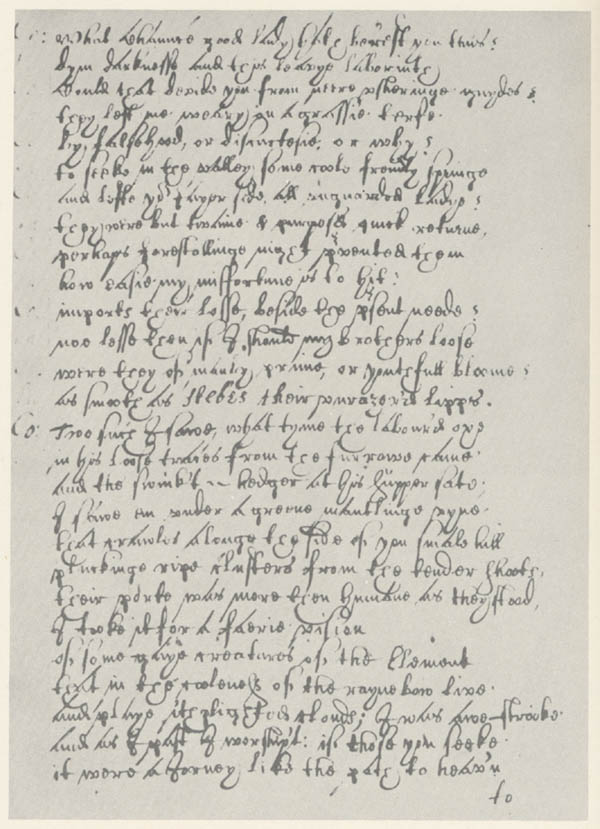 Co: What chaunce good lady hath bereft you thus?
Dym darknesse and this leavye laborinth
Could that devide you from neere vsheringe guydes?
they left me weary on a grassie terfe
by falshood, or discurtesie, or why?
to seeke in the valley some coole frendly springe
and lefte yor fayer side all vnguarded ladye?
they were but twaine & purpos'd quick returne.
perhaps forestallinge night pvented them
how easie my misfortune is to hit!
imports their losse, beside the psent neede?
noe lesse then if I should my brothers loose
were they of manly prime, or youthfull bloome?
as smooth as HEBES their vnrazor'd lipps.
Co: Two such I sawe, what tyme the labour'd oxe
in his loose traces from the furrowe came
and the swink't hedger at his supper sate.
I sawe em vnder a greene mantlinge vyne
that crawles alonge the side of yon smale hill
pluckinge ripe clusters from the tender shoots,
their porte was more then humane as they stood,
I tooke it for a faerie vision
of some gaye creatures of the Element
that in the cooleness of the raynebow live
and playe ith plighted clouds; I was awe-strooke
and as I past I worshipt: if those you seeke
it were a Jorney like the path to heav'n
to